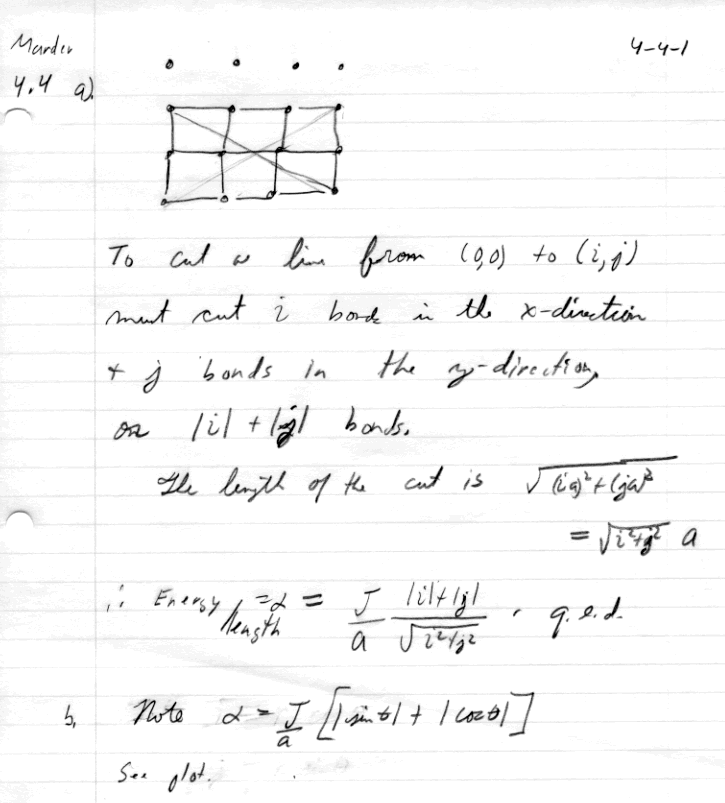 Marder
4-4-1
4.4 a).
To cut a line from (0,0) to (i,j)
must cut i bonds in the x-direction
+ j bonds in the y-direction,
or |i| + |j| bonds.
The length of the cut is √(ia)²+(ja)²
= √i²+j² a
∴ Energy/length = α = J/a |i|+|j|/√i²+j² . q.e.d.
b, Note α = J/a [|sinθ| + |cosθ|]
See plot.